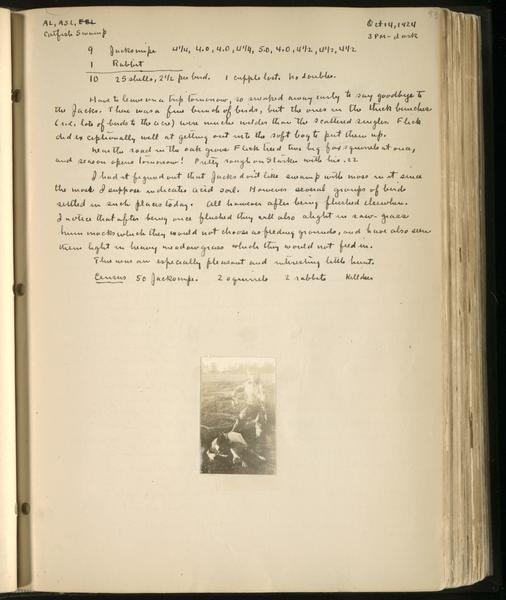 AL, ASL, EBL
Catfish Swamp
Oct 14, 1924
3 PM - dark
9 Jacksnipe 4 1/4, 4.0, 4.0, 4 1/4, 5.0, 4.0, 4 1/2, 4 1/2, 4 1/2
1 Rabbit
10 25 shells, 2 1/2 per bird. 1 cripple lost. No doubles.
Have to leave on a trip tomorrow, so sneaked away early to say goodbye to
the Jacks. There was a fine bunch of birds, but the ones in the thick bunches
(i.e. lots of birds to the acre) were much wilder than the scattered singles. Flick
did exceptionally well at getting out into the soft bog to put them up.
Near the road in the oak grove Flick treed two big fox squirrels at once,
and season opens tomorrow! Pretty rough on Starker with his .22
I had it figured out that Jacks don't like swamp with moss in it since
the moss I suppose indicates acid soil. However several groups of birds
settled in such places today. All however after being flushed elsewhere.
I notice that after being once flushed they will also alight in saw-grass
hummocks which they would not choose as feeding grounds, and have also seen
them light in heavy meadow grass which they would not feed in.
This was an especially pleasant and interesting little hunt.
Census 50 Jacksnipe. 2 squirrels 2 rabbits Killdeer